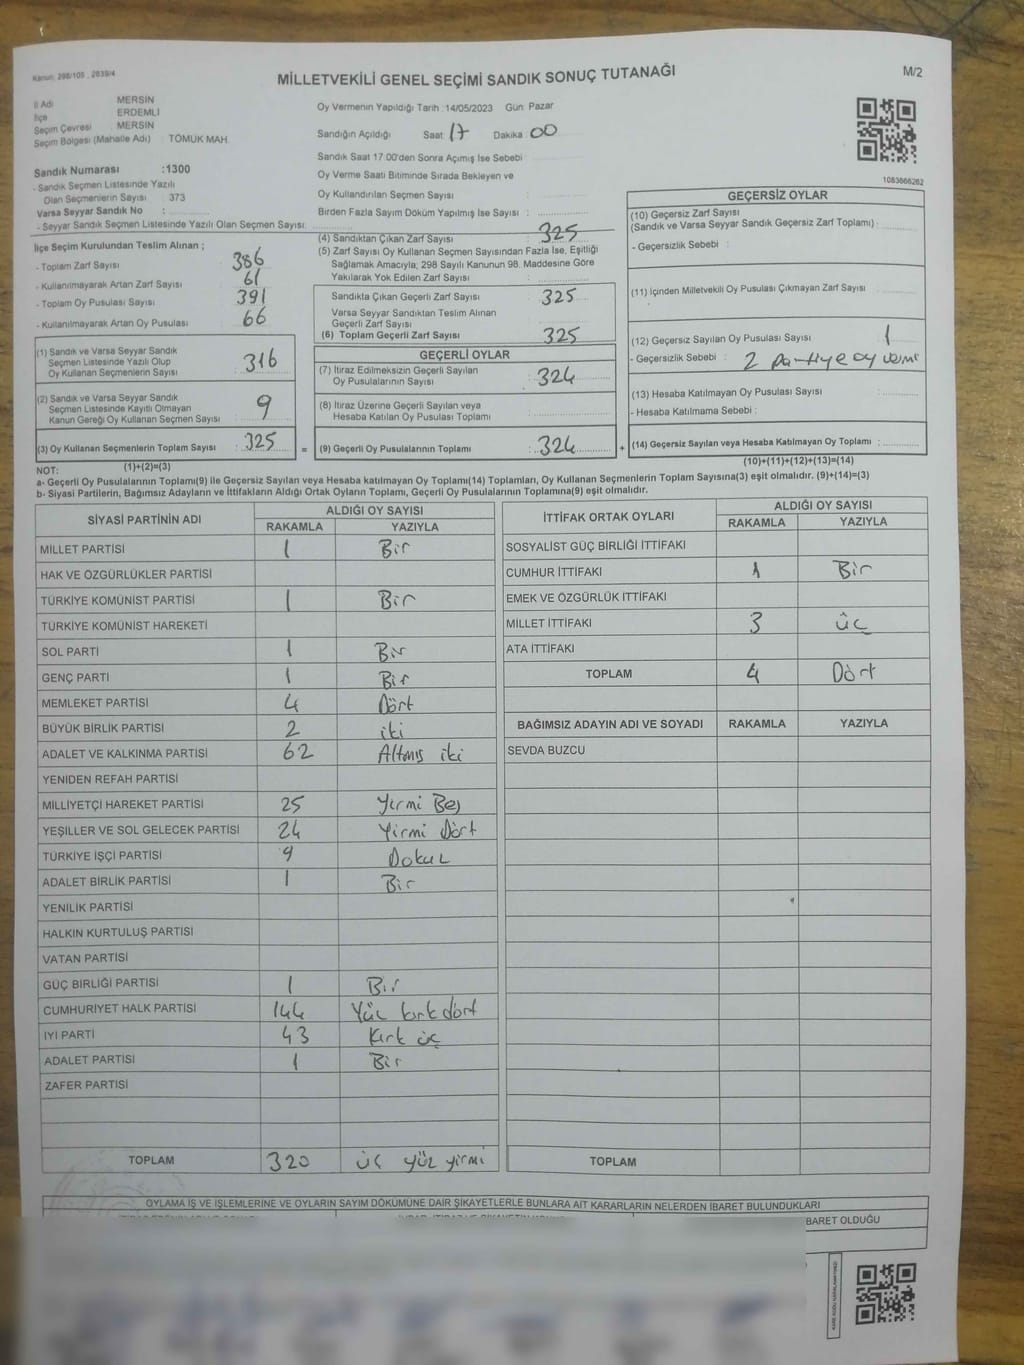 Kanun: 298/105 , 2839/4
MİLLETVEKİLİ GENEL SEÇİMİ SANDIK SONUÇ TUTANAĞI
M/2
İl Adı MERSİN
İlçe ERDEMLİ
Seçim Çevresi MERSİN
Seçim Bölgesi (Mahalle Adı) : TÖMÜK MAH.
Sandık Numarası :1300
- Sandık Seçmen Listesinde Yazılı
Olan Seçmenlerin Sayısı : 373
Varsa Seyyar Sandık No :
- Seyyar Sandık Seçmen Listesinde Yazılı Olan Seçmen Sayısı:
Oy Vermenin Yapıldığı Tarih :14/05/2023 Gün: Pazar
Sandığın Açıldığı Saat 17 Dakika : 00
Sandık Saat 17.00'den Sonra Açımış İse Sebebi :
Oy Verme Saati Bitiminde Sırada Bekleyen ve
Oy Kullandırılan Seçmen Sayısı :
Birden Fazla Sayım Döküm Yapılmış İse Sayısı :
1083666262
İlçe Seçim Kurulundan Teslim Alınan ;
- Toplam Zarf Sayısı : 386
- Kullanılmayarak Artan Zarf Sayısı : 61
- Toplam Oy Pusulası Sayısı : 391
- Kullanılmayarak Artan Oy Pusulası : 66
(1) Sandık ve Varsa Seyyar Sandık
Seçmen Listesinde Yazılı Olup
Oy Kullanan Seçmenlerin Sayısı : 316
(2) Sandık ve Varsa Seyyar Sandık
Seçmen Listesinde Kayıtlı Olmayan
Kanun Gereği Oy Kullanan Seçmen Sayısı : 9
(3) Oy Kullanan Seçmenlerin Toplam Sayısı : 325 =
(1)+(2)=(3)
(4) Sandıktan Çıkan Zarf Sayısı : 325
(5) Zarf Sayısı Oy Kullanan Seçmen Sayısından Fazla İse, Eşitliği
Sağlamak Amacıyla; 298 Sayılı Kanunun 98. Maddesine Göre
Yakılarak Yok Edilen Zarf Sayısı :
Sandıkta Çıkan Geçerli Zarf Sayısı : 325
Varsa Seyyar Sandıktan Teslim Alınan
Geçerli Zarf Sayısı :
(6) Toplam Geçerli Zarf Sayısı : 325
GEÇERLİ OYLAR
(7) İtiraz Edilmeksizin Geçerli Sayılan
Oy Pusulalarının Sayısı : 324
(8) İtiraz Üzerine Geçerli Sayılan veya
Hesaba Katılan Oy Pusulası Toplamı :
(9) Geçerli Oy Pusulalarının Toplamı : 324 +
GEÇERSİZ OYLAR
(10) Geçersiz Zarf Sayısı
(Sandık ve Varsa Seyyar Sandık Geçersiz Zarf Toplamı) :
- Geçersizlik Sebebi :
(11) İçinden Milletvekili Oy Pusulası Çıkmayan Zarf Sayısı :
(12) Geçersiz Sayılan Oy Pusulası Sayısı : 1
- Geçersizlik Sebebi : 2 partiye oy vermi
(13) Hesaba Katılmayan Oy Pusulası Sayısı :
- Hesaba Katılmama Sebebi :
(14) Geçersiz Sayılan veya Hesaba Katılmayan Oy Toplamı :
(10)+(11)+(12)+(13)=(14)
NOT:
a- Geçerli Oy Pusulalarının Toplamı(9) ile Geçersiz Sayılan veya Hesaba katılmayan Oy Toplamı(14) Toplamları, Oy Kullanan Seçmenlerin Toplam Sayısına(3) eşit olmalıdır. (9)+(14)=(3)
b- Siyasi Partilerin, Bağımsız Adayların ve İttifakların Aldığı Ortak Oyların Toplamı, Geçerli Oy Pusulalarının Toplamına(9) eşit olmalıdır.
SİYASİ PARTİNİN ADI ALDIĞI OY SAYISI
RAKAMLA YAZIYLA
MİLLET PARTİSİ 1 Bir
HAK VE ÖZGÜRLÜKLER PARTİSİ
TÜRKİYE KOMÜNİST PARTİSİ 1 Bir
TÜRKİYE KOMÜNİST HAREKETİ
SOL PARTİ 1 Bir
GENÇ PARTİ 1 Bir
MEMLEKET PARTİSİ 4 Dört
BÜYÜK BİRLİK PARTİSİ 2 iki
ADALET VE KALKINMA PARTİSİ 62 Altmış iki
YENİDEN REFAH PARTİSİ
MİLLİYETÇİ HAREKET PARTİSİ 25 Yirmi Beş
YEŞİLLER VE SOL GELECEK PARTİSİ 24 Yirmi Dört
TÜRKİYE İŞÇİ PARTİSİ 9 Dokuz
ADALET BİRLİK PARTİSİ 1 Bir
YENİLİK PARTİSİ
HALKIN KURTULUŞ PARTİSİ
VATAN PARTİSİ
GÜÇ BİRLİĞİ PARTİSİ 1 Bir
CUMHURİYET HALK PARTİSİ 144 Yüz kırk dört
İYİ PARTİ 43 Kırk üç
ADALET PARTİSİ 1 Bir
ZAFER PARTİSİ
TOPLAM 320 üç yüz yirmi
İTTİFAK ORTAK OYLARI ALDIĞI OY SAYISI
RAKAMLA YAZIYLA
SOSYALİST GÜÇ BİRLİĞİ İTTİFAKI
CUMHUR İTTİFAKI 1 Bir
EMEK VE ÖZGÜRLÜK İTTİFAKI
MİLLET İTTİFAKI 3 üç
ATA İTTİFAKI
TOPLAM 4 Dört
BAĞIMSIZ ADAYIN ADI VE SOYADI RAKAMLA YAZIYLA
SEVDA BUZCU
TOPLAM
OYLAMA İŞ VE İŞLEMLERİNE VE OYLARIN SAYIM DÖKÜMÜNE DAİR ŞİKAYETLERLE BUNLARA AİT KARARLARIN NELERDEN İBARET BULUNDUKLARI
BARET OLDUĞU